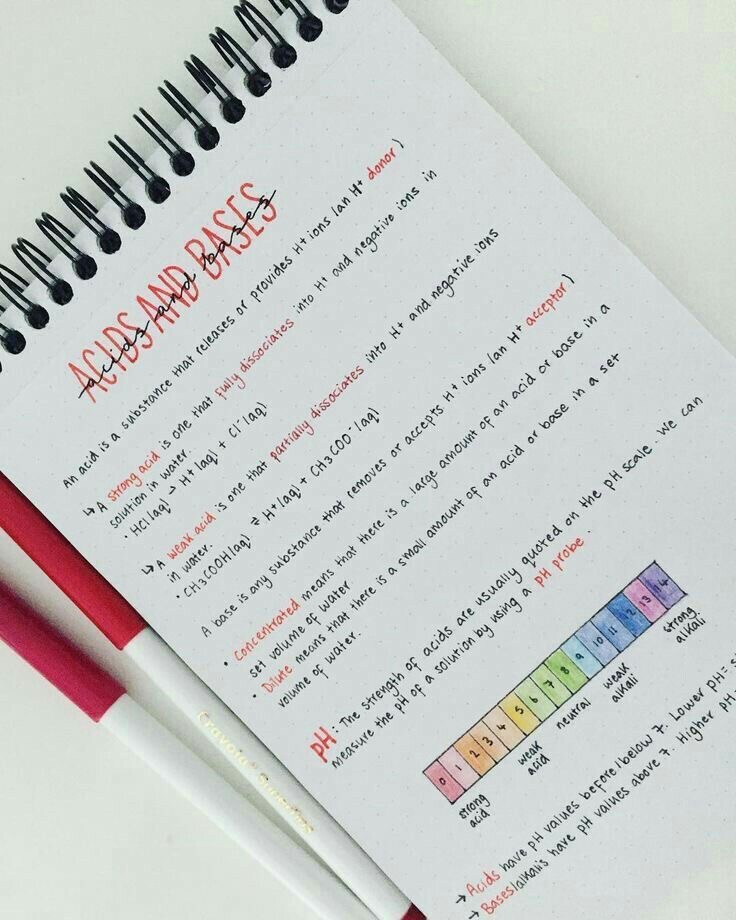 ACIDS AND BASES
acids and bases
An acid is a substance that releases or provides H+ ions (an H+ donor)
↳ A strong acid is one that fully dissociates into H+ and negative ions in
solution in water.
• HCl(aq) → H+(aq) + Cl-(aq)
↳ A weak acid is one that partially dissociates into H+ and negative ions
in water.
• CH3COOH(aq) ⇌ H+(aq) + CH3COO-(aq)
A base is any substance that removes or accepts H+ ions (an H+ acceptor)
• Concentrated means that there is a large amount of an acid or base in a
set volume of water
• Dilute means that there is a small amount of an acid or base in a set
volume of water.
pH: The strength of acids are usually quoted on the pH scale. We can
measure the pH of a solution by using a pH probe.
0 1 2 3 4 5 6 7 8 9 10 11 12 13 14
strong acid weak acid neutral weak alkali strong alkali
→ Acids have pH values before/below 7. Lower pH =
→ Bases/alkalis have pH values above 7. Higher pH =
Crayola SuperTips